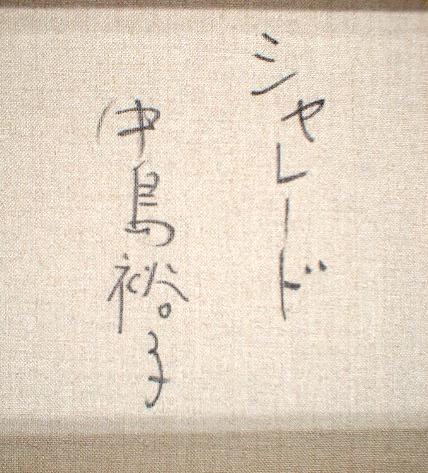 シャレード
中島裕子